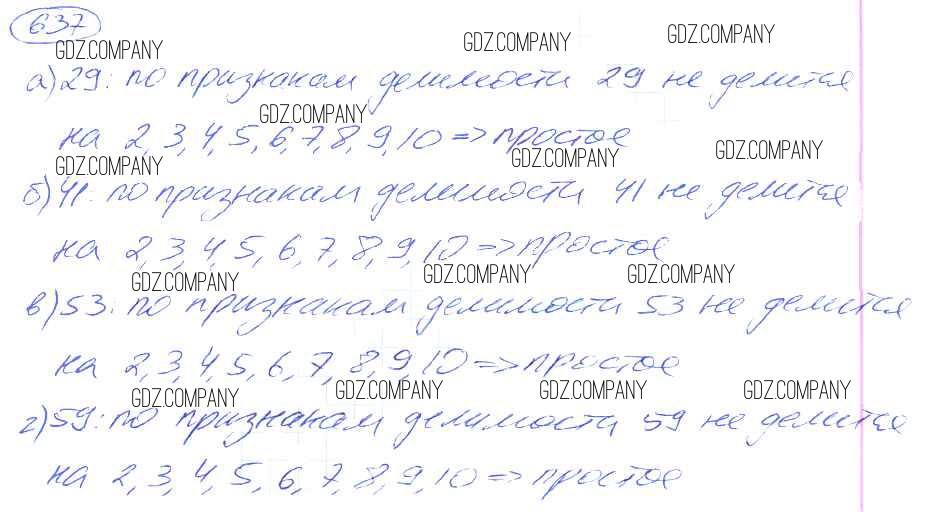 637
GDZ.COMPANY GDZ.COMPANY GDZ.COMPANY
а) 29: по признакам делимости 29 не делится
GDZ.COMPANY
на 2, 3, 4, 5, 6, 7, 8, 9, 10 => простое
GDZ.COMPANY GDZ.COMPANY GDZ.COMPANY
б) 41: по признакам делимости 41 не делится
на 2, 3, 4, 5, 6, 7, 8, 9, 10 => простое
GDZ.COMPANY GDZ.COMPANY GDZ.COMPANY
в) 53: по признакам делимости 53 не делится
на 2, 3, 4, 5, 6, 7, 8, 9, 10 => простое
GDZ.COMPANY GDZ.COMPANY GDZ.COMPANY GDZ.COMPANY
г) 59: по признакам делимости 59 не делится
на 2, 3, 4, 5, 6, 7, 8, 9, 10 => простое